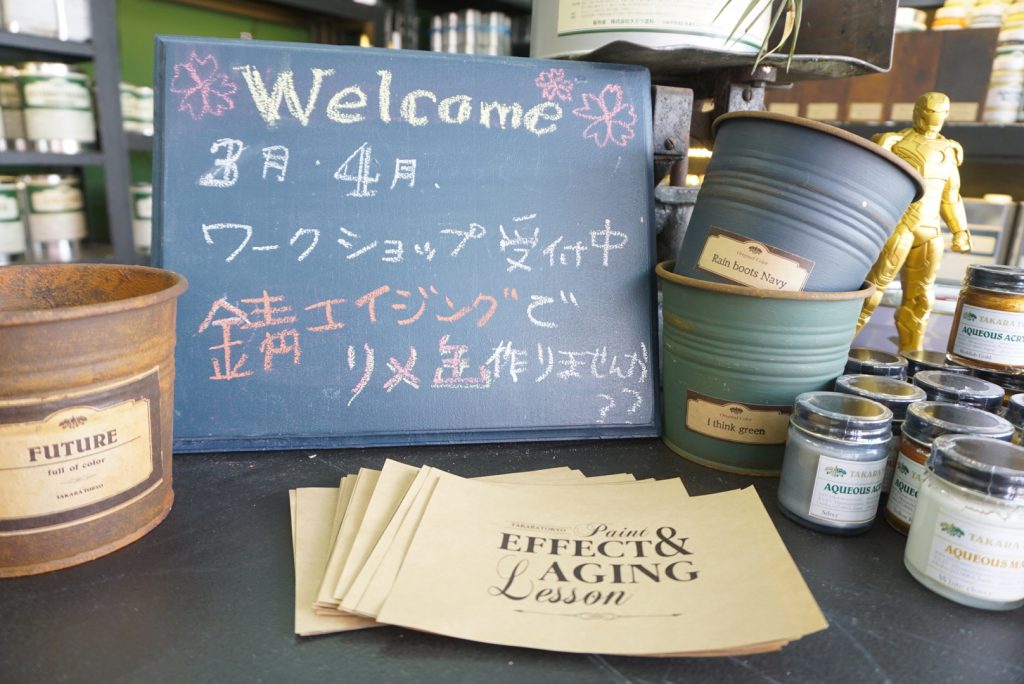 Welcome
3月・4月.
ワークショップ受付中
錆エイジングで
リメ缶作りませんか
??
FUTURE
full of color
TAKARATORYO
Original Color
Rain boots Navy
Original Color
I think green
TAKARATORYO
Paint
EFFECT&
AGING
Lesson
TAKARA
AQUEOUS ACR
TAKARA
AQUEOUS AC
Silver
TAKARA
AQUEOUS MA
White clover